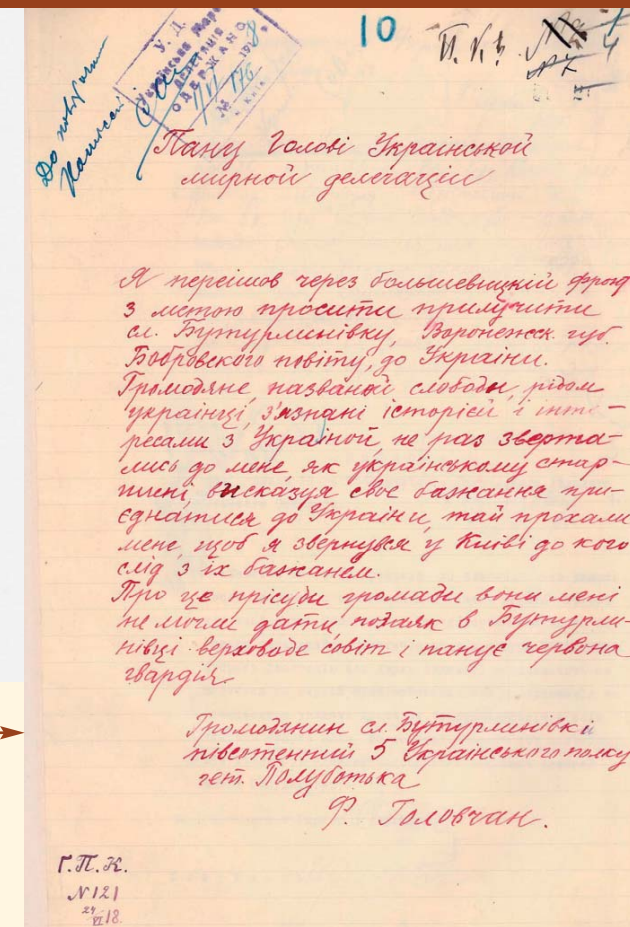 10
У. Д.
Українська Мирн
ДЕЛЕГАЦІЯ
ОДЕРЖАНО
11/VI 1918
№ 176
м. Київ
До
Пану Голові Украінськой
мирной делегаціи
Я переішов через большевицкій фронт
з метою просити прилучити
сл. Бутурлинівку, Воронежск. губ.
Бобровского повіту, до Украіни.
Громодяне, названой слободи, рідом
украінці, з'язнані історієй і инте-
ресами з Украіной, не раз зверта-
лись до мене як украінському стар-
шині, висказуя своє бажання при-
єднатися до Украіни, тай прохали
мене, щоб я звернувся у Киіві до кого
слід з іх бажанем.
Про це прісуди громади вони мені
не могли дати, позаяк в Бутурли-
нівці верховоде совіт і панує червона
гвардія.
Громодянин сл. Бутурлинівкі
півсотенний 5 Украінського полку
гет. Полуботька
Ф. Головчан.
Г.П.К.
N 121
24/VI 18.